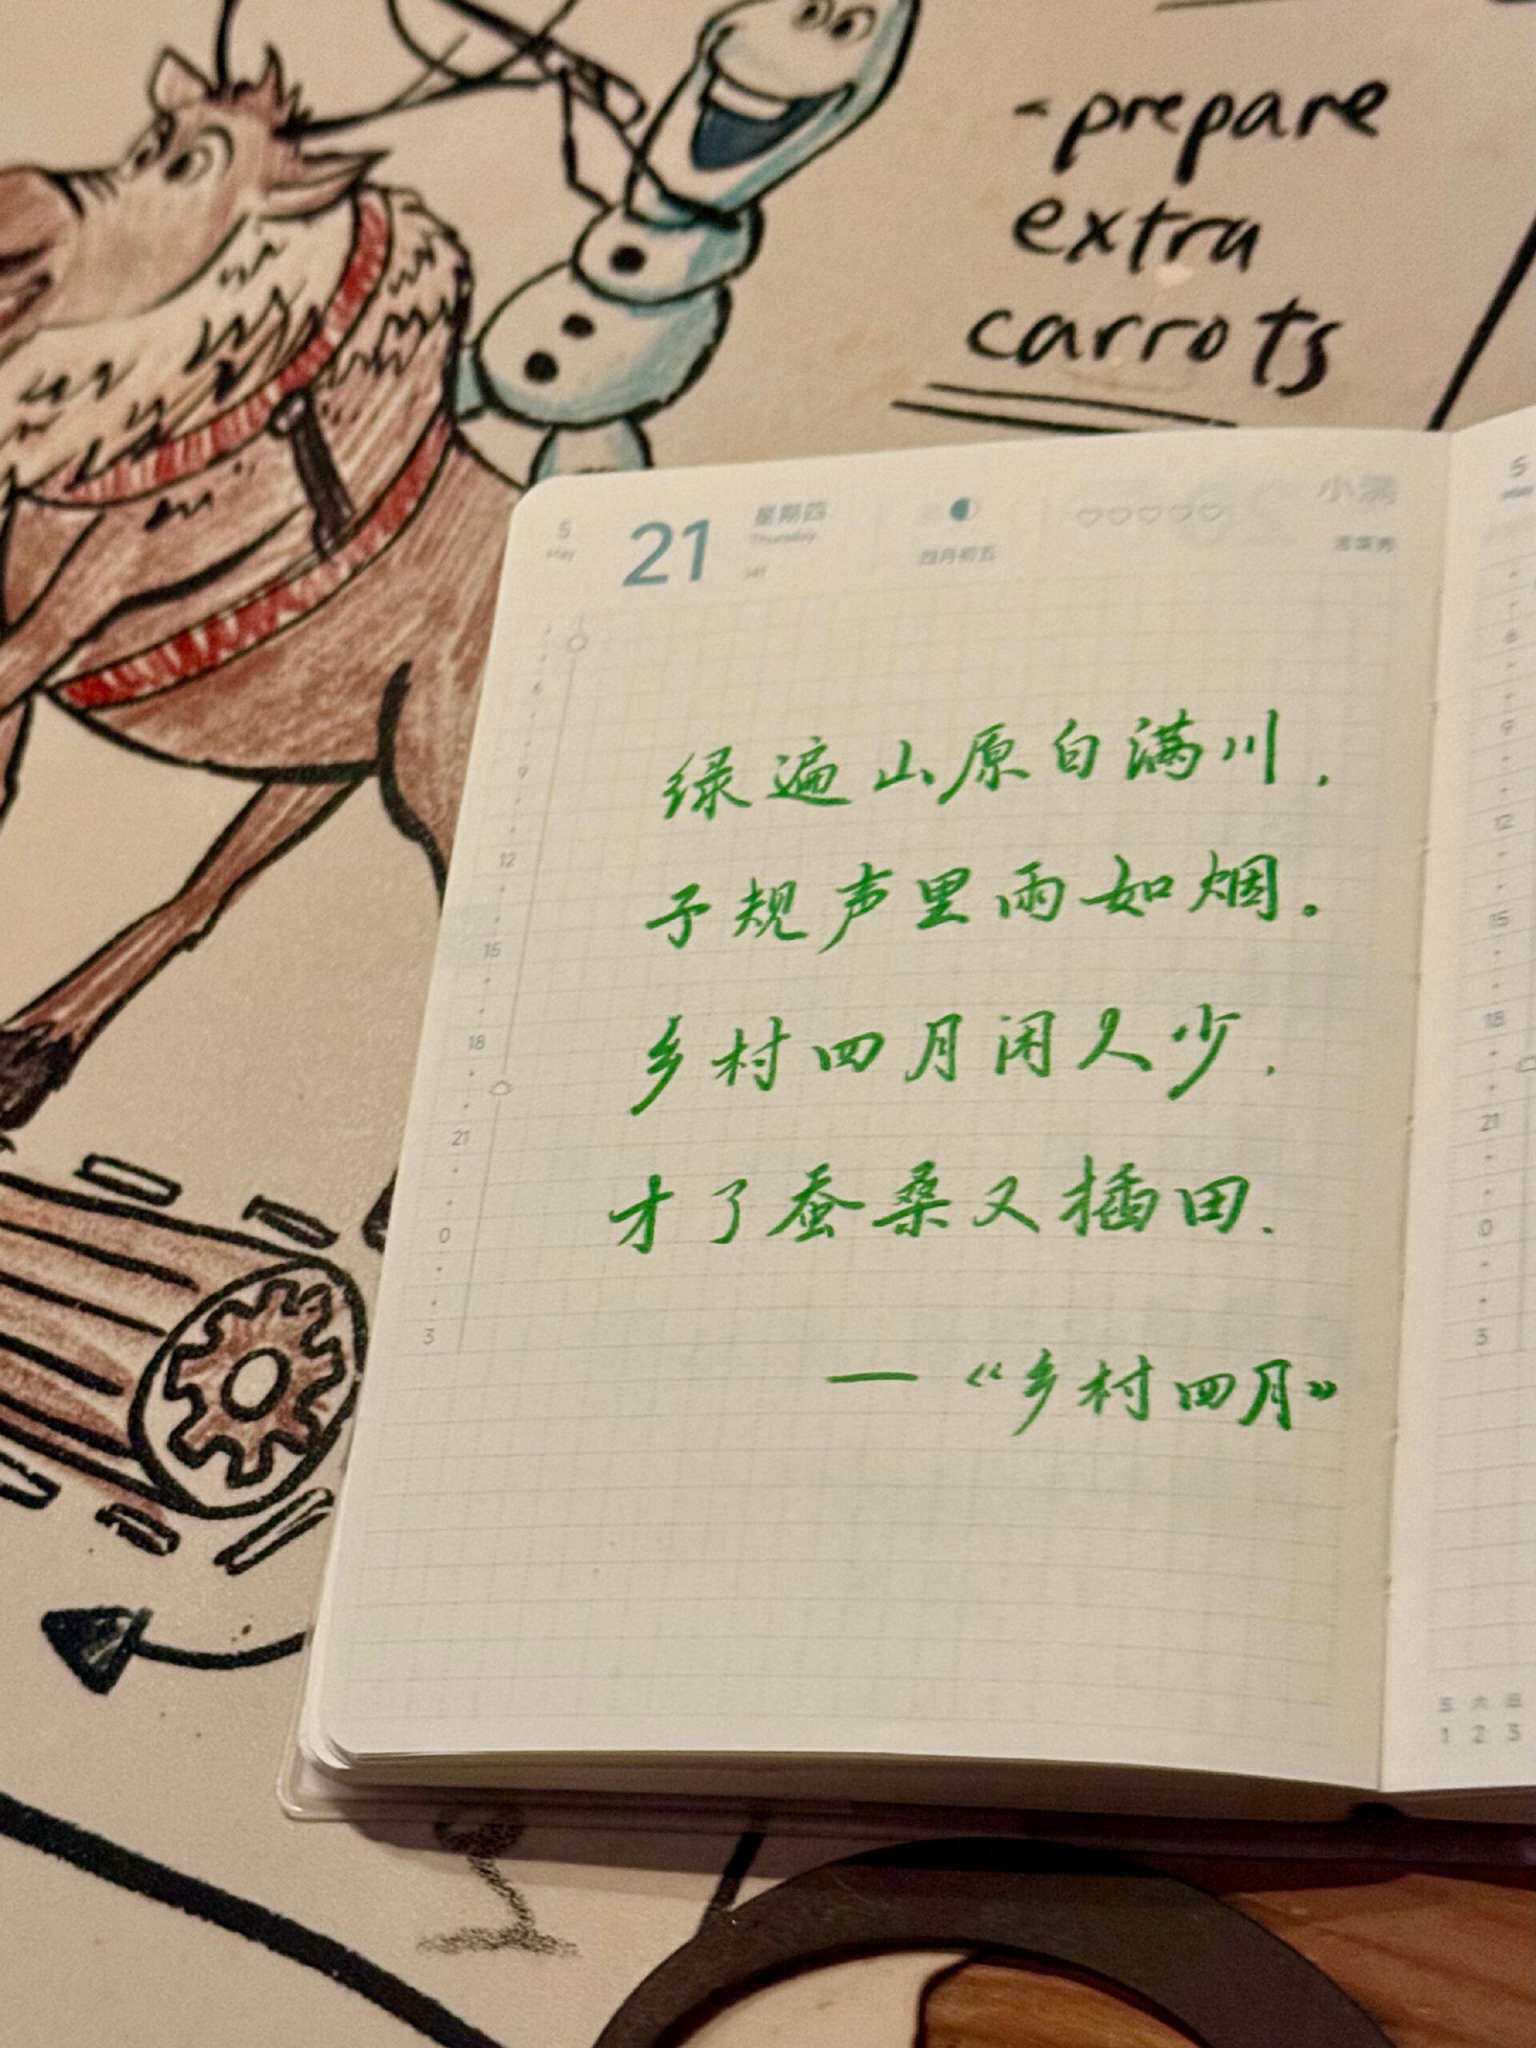 - prepare
extra
carrots
5
May
21
星期四
Thursday
141
四月初五
小满
苦菜秀
6
9
12
15
18
21
0
3
绿遍山原白满川,
子规声里雨如烟。
乡村四月闲人少.
才了蚕桑又插田.
—《乡村四月》
5
6
9
12
15
18
21
0
3
五 六 日
1 2 3